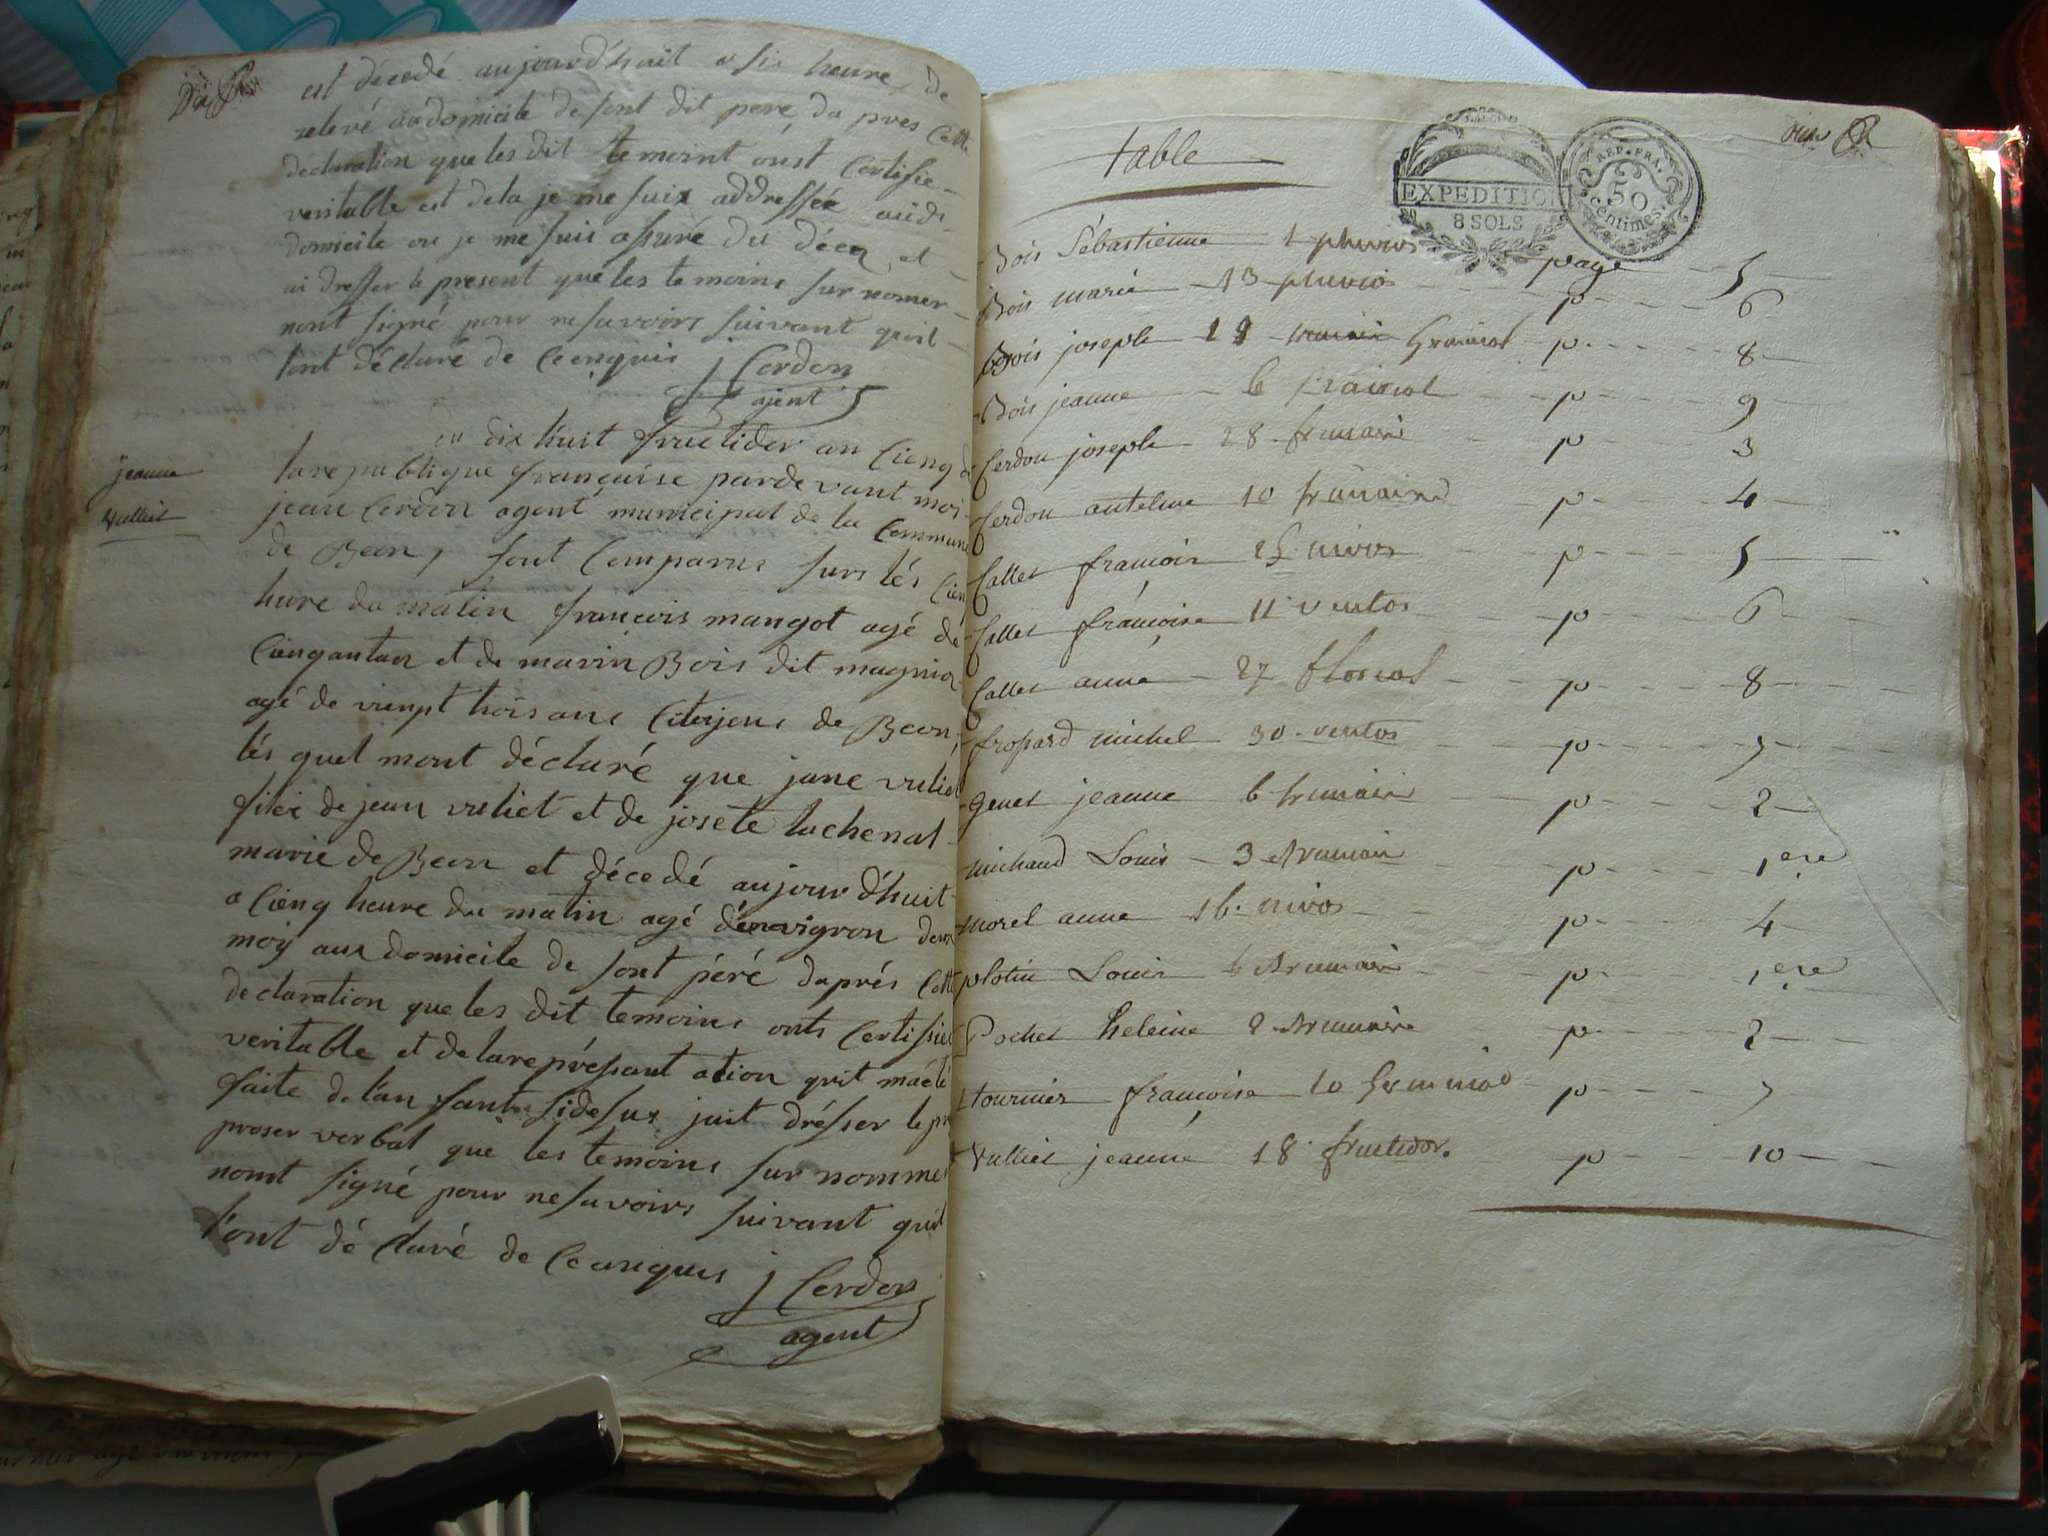 Dix
est décedé aujourd'huit a six heure de
relevé au domicile de sont dit pere da pres cette
déclaration que les dit temoint onst certifie
veritable est dela je me suix addressée audi
domicile ou je me suis assuré du décez et
ai dresser le present que les temoins sur nomer
nont signé pour ne savoirs suivant quil
sont déclaré de ce enquis j Cerdon
ajent
jeanne
vulliet
du dix huit fructider an cienq de
la republique française pardevant moi
jean Cerdon agent municipal de la Commune
de Beon, sont Comparus surs lés cienq
hure du matin françois mangot agé de
cienquantan et de marin Bois dit magnin
agé de vienpt troisans Citoijens de Beon,
lés quel mont déclaré que jane vuliet
filié de jean vuliet et de josete luchenal
marié de Beon et décedé aujour d'huit
a cienq heure du matin agé dénvigron deux
moiy aux domicile de sont péré daprés cette
declaration que les dit temoins onts certifiet
veritable et delareprésant ation quit maété
faite de lan fant sidesux jait drésser le pr
proser verbal que les temoins sur nommes
nomt signé pour ne savoirs suivant quil
l'ont dé claré de ce enquis j Cerdon
agent
table
EXPEDITION
8 SOLS
REP. FRA.
50
centimes.
Bois Sébastienne 1 pluvios page 5
Bois marie 13 pluvios p 6
Bois joseph 19 Germinal p 8
Bois jeanne 6 prairial p 9
Cerdon joseph 28 frimaire p 3
Cerdon antelme 10 frimaire p 4
Callet françois 25 nivos p 5
Callet françoise 11 ventos p 6
Callet anne 27 floreal p 8
frossard michel 30 ventos p 7
Genet jeanne 6 frimaire p 2
michaud Louis 3 brumaire p 1ere
morel anne 16 nivos p 4
plotin Louis 4 brumaire p 1ere
Pochet heleine 2 frimaire p 2
tournier françoise 10 Germinal p 7
Vulliet jeanne 18 fructidor. p 10